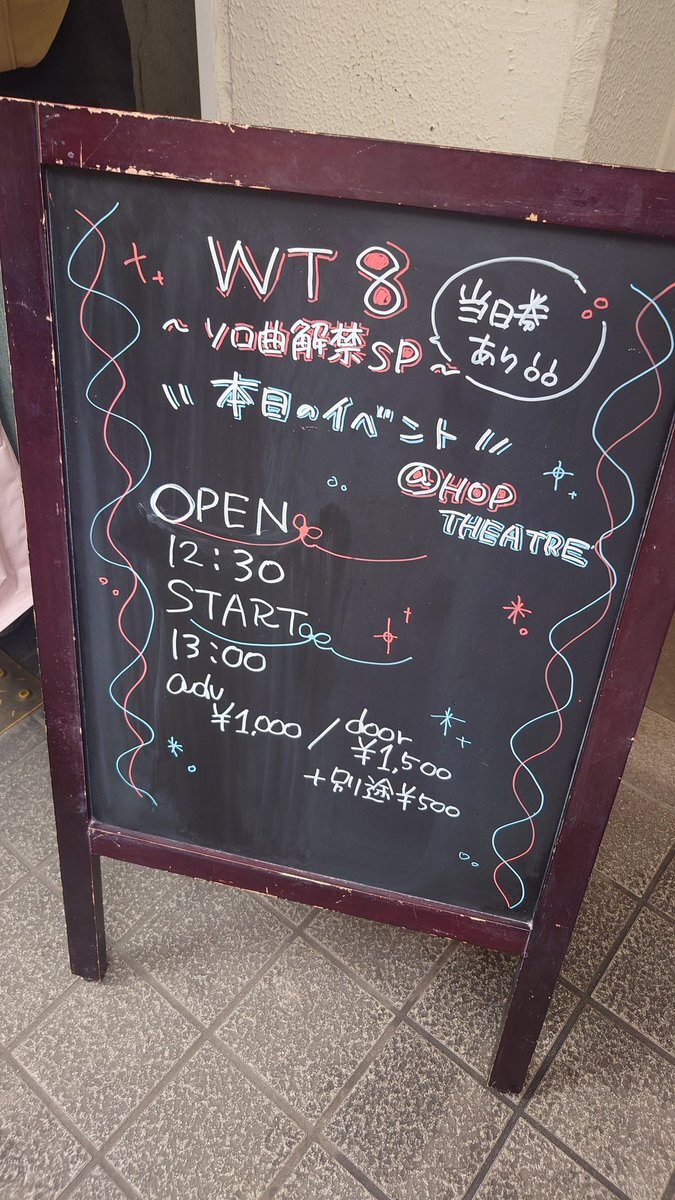 WT 8
～ソロ曲解禁SP～
当日券
あり!!
\\\ 本日のイベント ///
@HOP
THEATRE
OPEN
12:30
START
13:00
adv
¥1,000 / door
¥1,500
+別途¥500